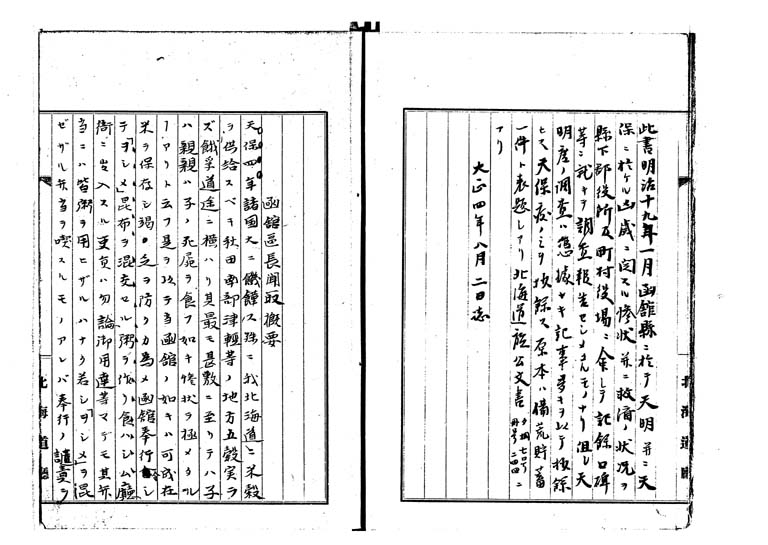 此書明治十九年一月函館縣ニ於テ天明并ニ天
保ニ於ケル凶歳ニ関スル惨状并ニ救済ノ状況ヲ
縣下郡役所及町村役場ニ令シテ記録口碑
等ニ就キテ調査報告セシメタルモノナリ但シ天
明度ノ調査ハ憑據ナキ記事多キヲ以テ抜録
セス天保度ノミヲ抜録ス原本ハ備荒貯蓄
一件ト表題シアリ北海道庁公文書
アリ
大正四年八月二日誌
函館區長聞取概要
天保四年諸国大ニ饑饉ス殊ニ我北海道ニ米穀
ヲ供給スベキ秋田南部津輕等ノ地方五穀実ラ
ズ餓孚道途ニ横ハリ其最モ甚敷ニ至リテハ子
ハ親親ハ子ノ死屍ヲ食フ如キ惨状ヲ極メタル
アリト云フ是ヲ以テ当函館ノ如キハ可成在
米ヲ保存シ竭乏ヲ防クカ為メ函館奉行
テ「ヲシメ」昆布ヲ混交セル粥ヲ作リ食ハシム廳
衙ニ出入スル吏員ハ勿論御用達等マデモ其弁
当ニハ皆粥ヲ用ヒザルハナク若シ「ヲシメ」ヲ混
ゼザル弁当ヲ喫スルモノアレバ奉行ノ譴責ヲ
北海道廳